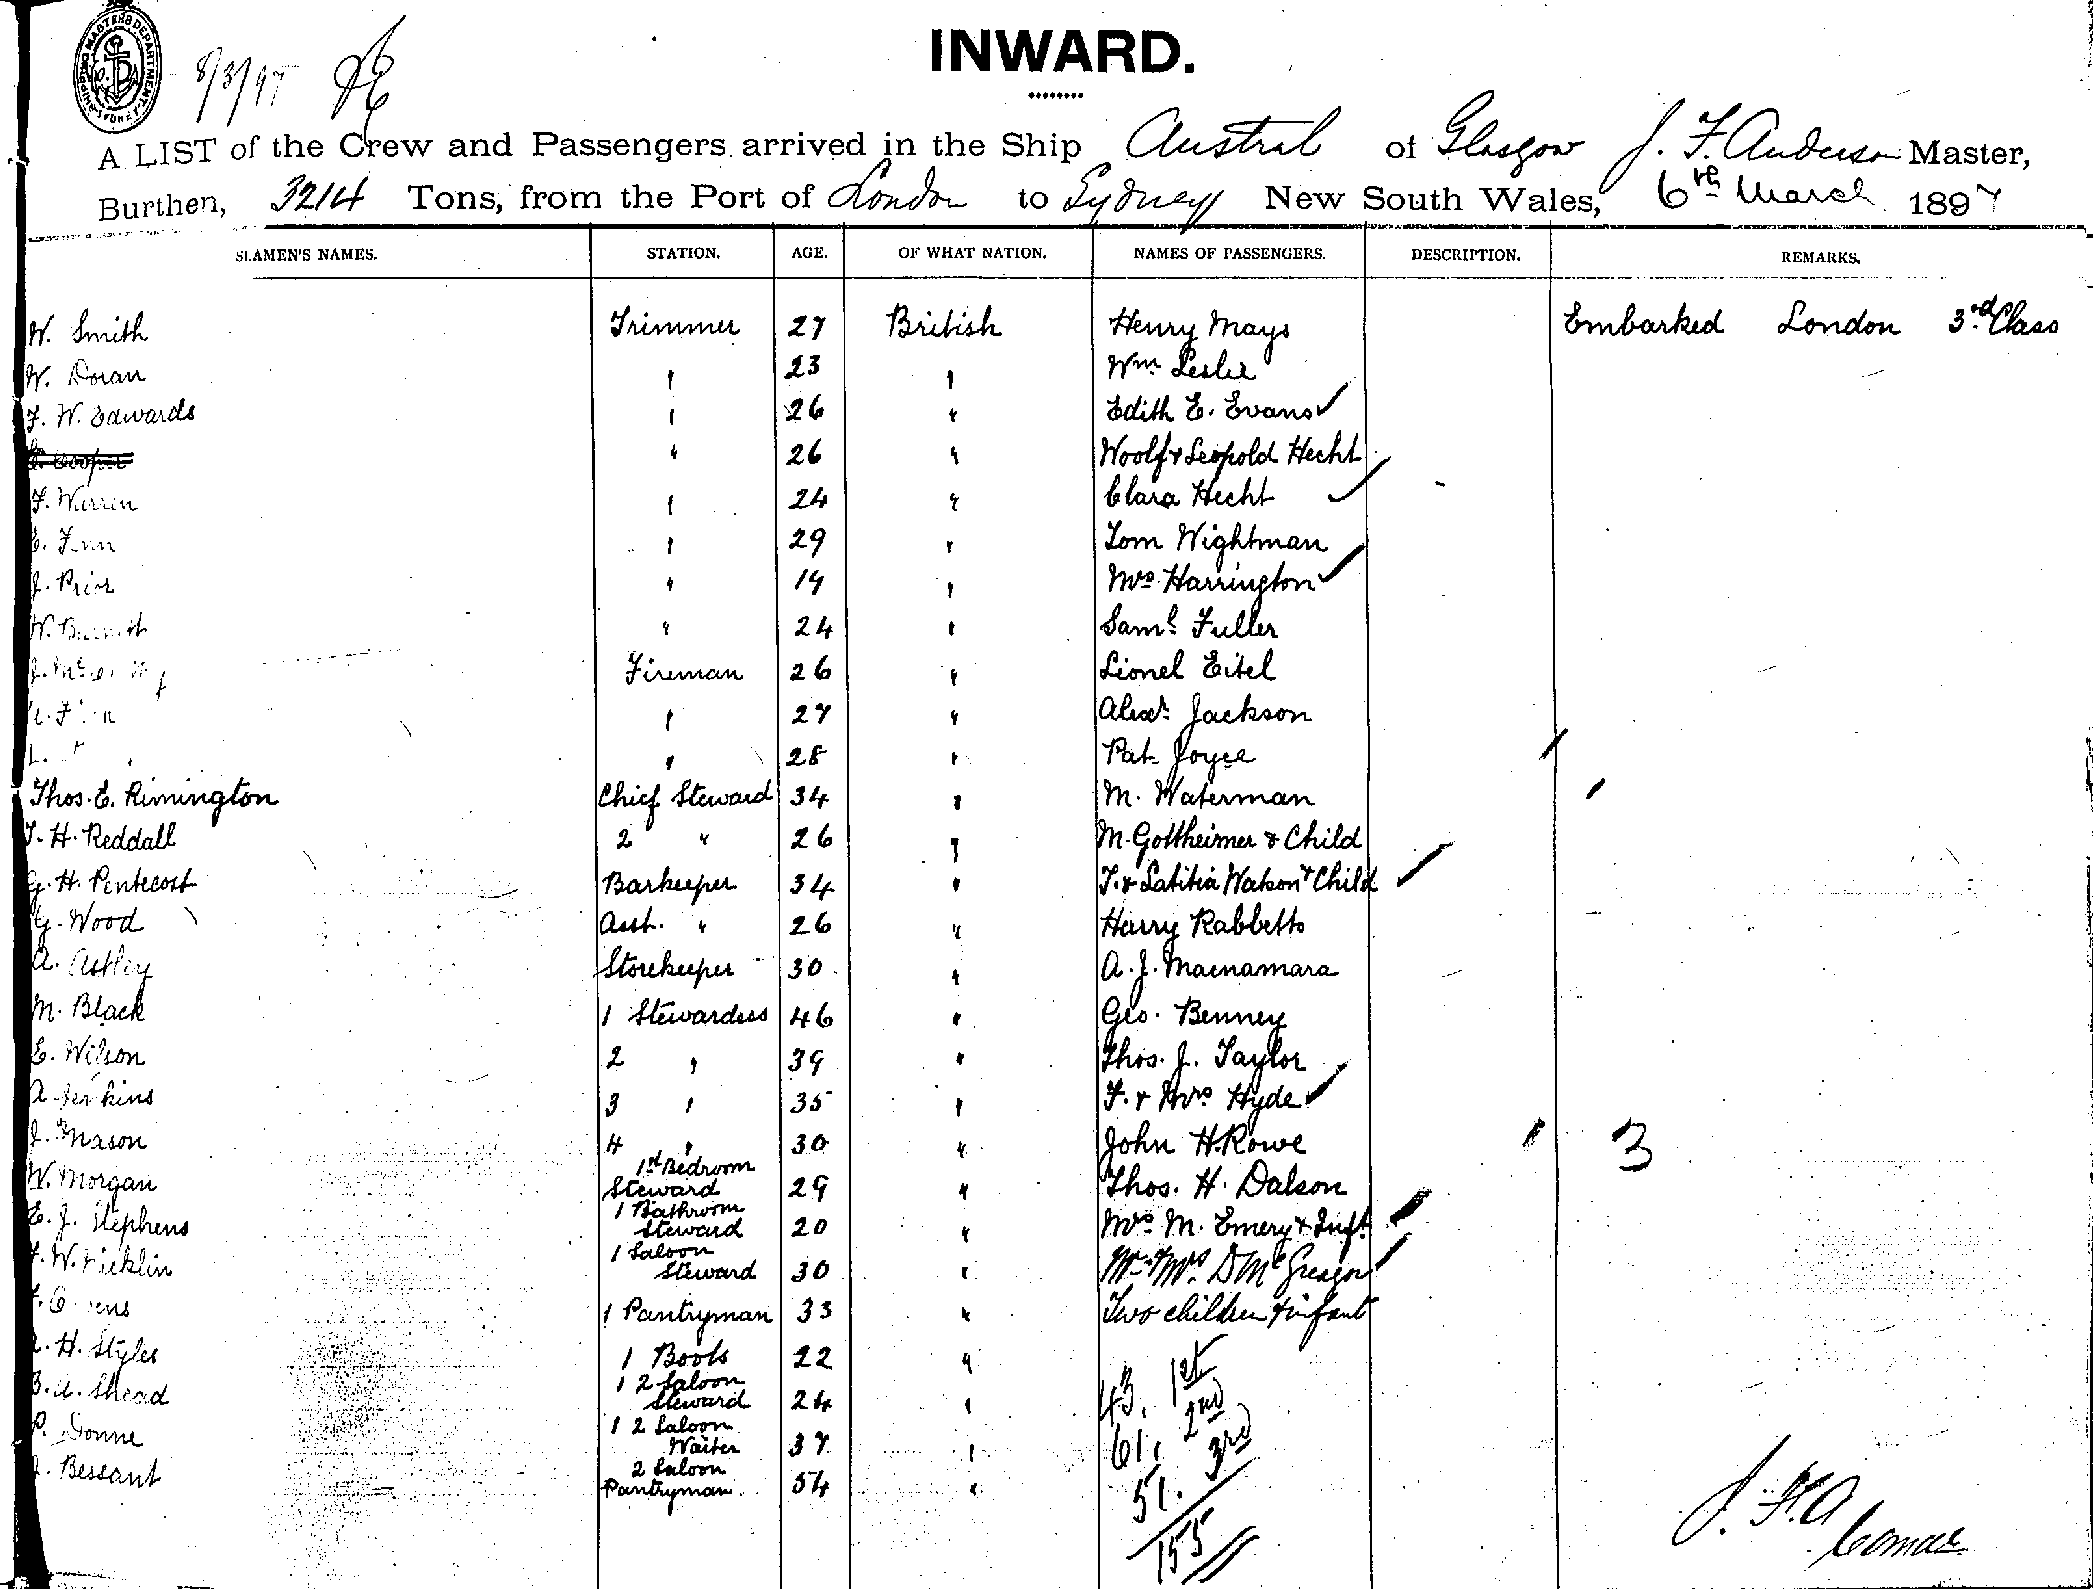 SHIPPING MASTERS DEPARTMENT SYDNEY
8/3/97
INWARD.
A LIST of the Crew and Passengers arrived in the Ship Austral of Glasgow J. F. Anderson Master,
Burthen, 3214 Tons, from the Port of London to Sydney New South Wales, 6th March 1897
SEAMEN'S NAMES. STATION. AGE. OF WHAT NATION. NAMES OF PASSENGERS. DESCRIPTION. REMARKS.
W. Smith Trimmer 27 British Henry Mays Embarked London 3rd Class
W. Doran " 23 " Wm Leslie
F. W. Edwards " 26 " Edith E. Evans
Cooper " 26 " Woolf & Leopold Hecht
F. Warren " 24 " Clara Hecht
E. " 29 " Tom Wightman
J. Prior " 19 " Mrs Harrington
W. " 24 " Saml Fuller
J. Fireman 26 " Lionel Eitel
" 27 " Alexr Jackson
" 28 " Pat Joyce
Thos. E. Rimington Chief Steward 34 " M. Waterman
T. H. Reddall 2 " 26 " M. Gottheimer & Child
G. H. Pentecost Barkeeper 34 " T. & Latitia Watson & Child
G. Wood Asst. " 26 " Harry Rabbetts
A. Astley Storekeeper 30 " A. J. Macnamara
M. Black 1 Stewardess 46 " Geo. Benney
E. Wilson 2 " 39 " Thos. J. Taylor
A. Jenkins 3 " 35 " F. & Mrs Hyde
J. Mason 4 " 30 " John H. Rowe 3
W. Morgan 1st Bedroom Steward 29 " Thos. H. Dalson
E. J. Stephens 1 Bathroom Steward 20 " Mrs M. Emery & Inft.
W. Nicklin 1 Saloon Steward 30 " Mr & Mrs D McGregor
1 Pantryman 33 " Two children & infant
H. Styles 1 Boots 22 "
Shead 1 2 Saloon Steward 24 " 43. 1st
P. Donne 1 2 Saloon Waiter 37 " 61. 2nd
J. Bessant 2 Saloon Pantryman 54 " 51. 3rd
155
J. F. A
Comdr